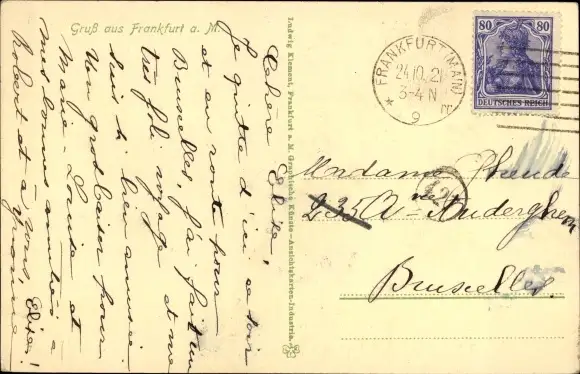 Gruß aus Frankfurt a. M.
Chère Elise,
Je quitte d'ici ce soir
et en route pour
Bruxelles, j'ai fait un
très joli voyage et me
suis bien amusée.
Un gros baiser pour
Marie-Louise et
mes bonnes amitiés à
Robert et à vous, Elise!
Yvonne
Ludwig Klement, Frankfurt a. M. Graphische Künste-Ansichtskarten-Industrie.
FRANKFURT (MAIN)
24.10.21
3-4 N
* 9
80 80
DEUTSCHES REICH
Madame
235 Auderghem
Bruxelles